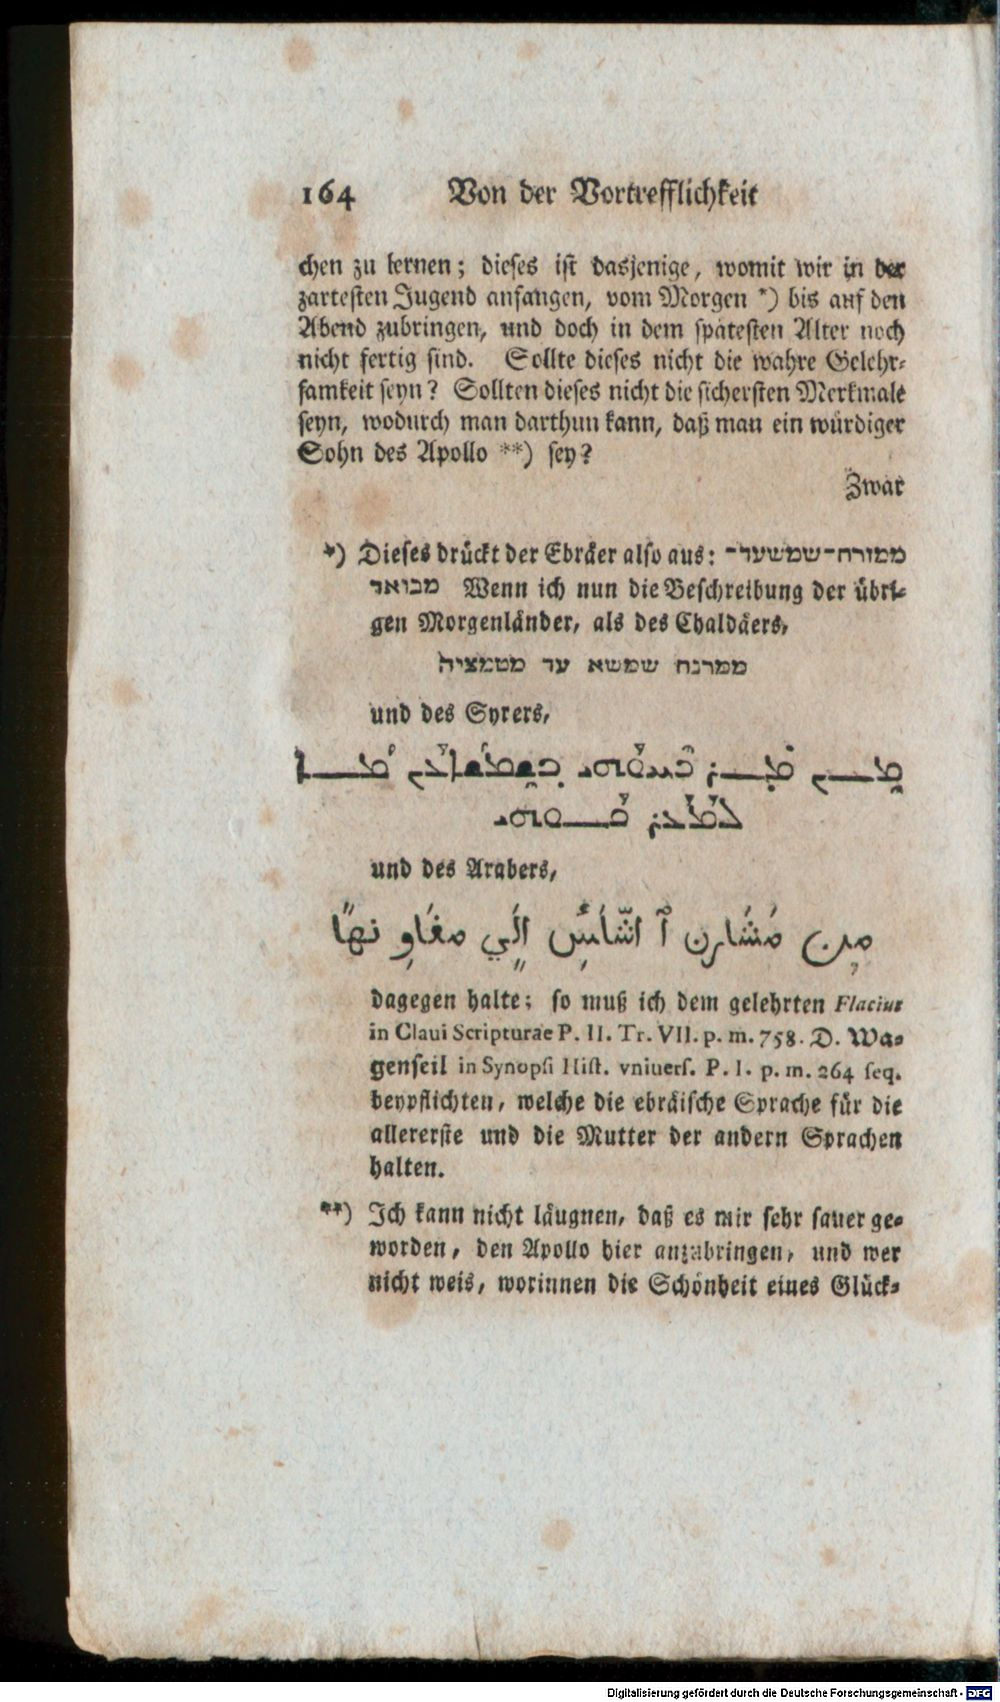 164 Von der Vortrefflichkeit
chen zu lernen; dieses ist dasjenige, womit wir in der
zartesten Jugend anfangen, vom Morgen *) bis auf den
Abend zubringen, und doch in dem spätesten Alter noch
nicht fertig sind. Sollte dieses nicht die wahre Gelehr-
samkeit seyn? Sollten dieses nicht die sichersten Merkmale
seyn, wodurch man darthun kann, daß man ein würdiger
Sohn des Apollo **) sey?
Zwar
*) Dieses drückt der Ebräer also aus: ממזרח-שמשעד-
מבואד Wenn ich nun die Beschreibung der übri-
gen Morgenländer, als des Chaldäers,
ממרנח שמשא עד מטמציה
und des Syrers,
und des Arabers,
dagegen halte; so muß ich dem gelehrten Flacius
in Claui Scripturae P. II. Tr. VII. p. m. 758. D. Wa-
genseil in Synopsi Hist. vniuers. P. I. p. m. 264 seq.
beypflichten, welche die ebräische Sprache für die
allererste und die Mutter der andern Sprachen
halten.
**) Ich kann nicht läugnen, daß es mir sehr sauer ge-
worden, den Apollo hier anzubringen, und wer
nicht weis, worinnen die Schönheit eines Glück-
Digitalisierung gefördert durch die Deutsche Forschungsgemeinschaft - DFG